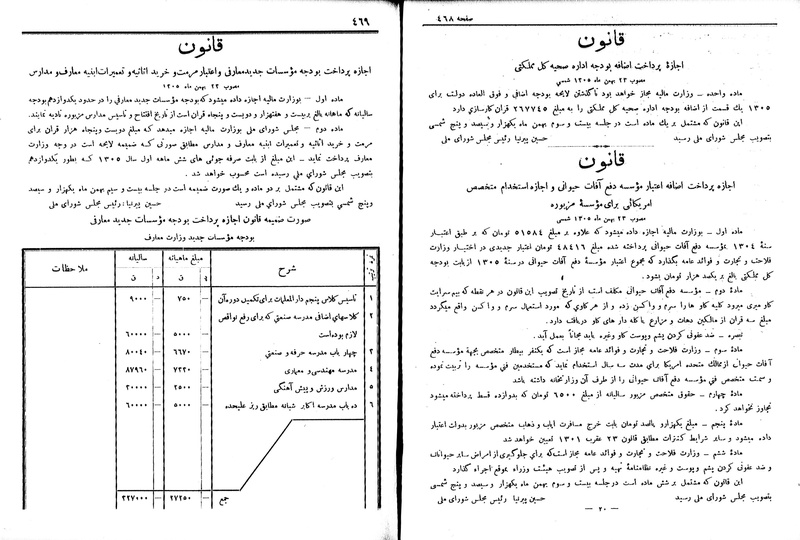 صفحه ۴۶۸
قانون
اجازهٔ پرداخت اضافه بودجه اداره صحیه کل مملکتی
مصوب ۲۳ بهمن ماه ۱۳۰۵ شمسی
ماده واحده ـ وزارت مالیه مجاز خواهد بود تاگذشتن لایحه بودجه اضافی و فوق العاده دولت برای
۱۳۰۵ یك قسمت از اضافه بودجه اداره صحیه کل مملکتی را به مبلغ ۲۶۷۷۴۵ قران کارسازی دارد
این قانون که مشتمل بر یك ماده است در جلسه بیست و سوم بهمن ماه یکهزار و سیصد و پنج شمسی
بتصویب مجلس شورای ملی رسید حسین پیرنیا رئیس مجلس شورای ملی
قانون
اجازه پرداخت اضافه اعتبار مؤسسه دفع آفات حیوانی و اجازه استخدام متخصص
امریکائی برای مؤسسهٔ مزبوره
مصوب ۲۳ بهمن ماه ۱۳۰۵ شمسی
ماده اول ـ بوزارت مالیه اجازه داده میشود که علاوه بر مبلغ ۵۱۵۸۴ تومان که بر طبق اعتبار
سنهٔ ۱۳۰۴ بمؤسسه دفع آفات حیوانی پرداخته شده مبلغ ۴۸۴۱۶ تومان اعتبار جدیدی در اختیار وزارت
فلاحت و تجارت و فوائد عامه بگذارد که مجموع اعتبار مؤسسه دفع آفات حیوانی در سنهٔ ۱۳۰۵ از بابت بودجه
کل مملکتی بالغ بر یکصد هزار تومان بشود .
مادهٔ دوم ـ مؤسسه دفع آفات حیوانی مکلف است از تاریخ تصویب این قانون در هر نقطه که بیم سرایت
گاو میری میرود کلیه گاو ها را سرم و واکسن زده و از هر گاوی که مورد استعمال سرم و واکسن واقع میگردد
مبلغ سه قران از مالکین دهات و مزارع یا گله دار های گاو دریافت دارد .
تبصره ـ ضد عفونی کردن پشم و پوست و گاو و غیره باید مجاناً بعمل آید .
مادهٔ سوم ـ وزارت فلاحت و تجارت و فوائد عامه مجاز است که یکنفر بیطار متخصص بجهة مؤسسه دفع
آفات حیوانی از ممالك متحده امریکا برای مدت سه سال استخدام نماید که مستخدمین فنی مؤسسه را تربیت نموده
و سمت متخصص فنی مؤسسه دفع آفات حیوانی را از طرف آن وزارتخانه داشته باشد
مادهٔ چهارم ـ حقوق متخصص مزبور سالیانه از مبلغ ۶۵۰۰ تومان که بدوازده قسط پرداخته میشود
تجاوز نخواهد کرد .
مادهٔ پنجم ـ مبلغ یکهزار و پانصد تومان بابت خرج مسافرت ایاب و ذهاب متخصص مزبور بدولت اعتبار
داده میشود و سایر شرایط کنترات مطابق قانون ۲۳ عقرب ۱۳۰۱ تعیین خواهد شد
مادهٔ ششم ـ وزارت فلاحت و تجارت و فوائد عامه مجاز است که برای جلوگیری از امراض سایر حیوانات
و ضد عفونی کردن پشم و پوست و غیره نظامنامهٔ تهیه و پس از تصویب هیئت وزراء بموقع اجراء گذارد
این قانون که مشتمل بر شش ماده است در جلسه بیست و سوم بهمن ماه یکهزار و سیصد و پنج شمسی
بتصویب مجلس شورای ملی رسید حسین پیرنیا رئیس مجلس شورای ملی
— ۲۰ —
۴۶۹
قانون
اجازه پرداخت بودجه مؤسسات جدید معارفی و اعتبار مرمت و خرید اثاثیه و تعمیرات ابنیه معارف و مدارس
مصوب ۲۳ بهمن ماه ۱۳۰۵
ماده اول ـ بوزارت مالیه اجازه داده میشود که بودجه مؤسسات جدید معارفی را در حدود یکدوازدهم بودجه
سالیانه که ماهانه بالغ بر بیست و هفتهزار و دویست و پنجاه قران است از تاریخ افتتاح و تأسیس مدارس مزبوره تادیه نمایند.
ماده دوم ـ مجلس شورای ملی بوزارت مالیه اجازه میدهد که مبلغ دویست و پنجاه هزار قران برای
مرمت و خرید اثاثیه و تعمیرات ابنیه معارف و مدارس مطابق صورتی که ضمیمه لایحه است در وجه وزارت
معارف پرداخت نماید ـ این مبلغ از بابت صرفه جوئی های شش ماهه اول سال ۱۳۰۵ که بطور یکدوازدهم
بتصویب مجلس شورای ملی رسیده است محسوب خواهد شد .
این قانون که مشتمل بر دو ماده و یك صورت ضمیمه است در جلسه بیست و سیم بهمن ماه یکهزار و سیصد
و پنج شمسی بتصویب مجلس شورای ملی رسید حسین پیرنیا : رئیس مجلس شورای ملی
صورت ضمیمه قانون اجازه پرداخت بودجه مؤسسات جدید معارفی
بودجه مؤسسات جدید وزارت معارف
شرح مبلغ ماهیانه سالیانه ملاحظات
ن د ن
۱ تاسیس کلاس پنجم دارالمعلمات برای تکمیل دوره آن ۷۵۰ ۹۰۰۰
۲ کلاسهای اضافی مدرسه صنعتی که برای رفع نواقص
لازم بوده است ۵۰۰۰ ۶۰۰۰۰
۳ چهار باب مدرسه حرفه و صنعتی ۶۶۷۰ ۸۰۰۴۰
۴ مدرسه مهندسی و معماری ۷۳۳۰ ۸۷۹۶۰
۵ مدارس ورزش و پیش آهنگی ۲۵۰۰ ۳۰۰۰۰
۶ ده باب مدرسه اکابر شبانه مطابق ریز علیحده ۵۰۰۰ ۶۰۰۰۰
جمع ۲۷۲۵۰ ۳۲۷۰۰۰